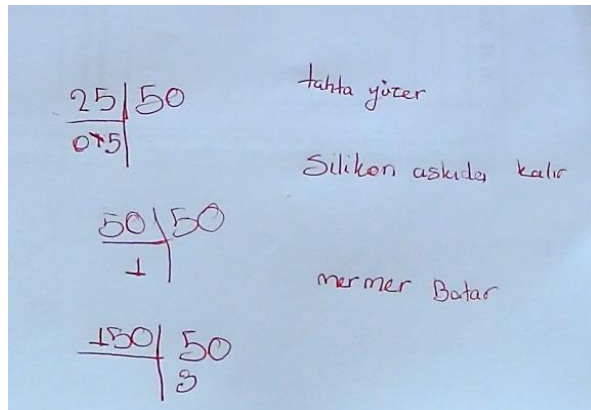 25 | 50
0,5
tahta yüzer
50 | 50
1
Silikon askıda kalır
150 | 50
3
mermer Batar